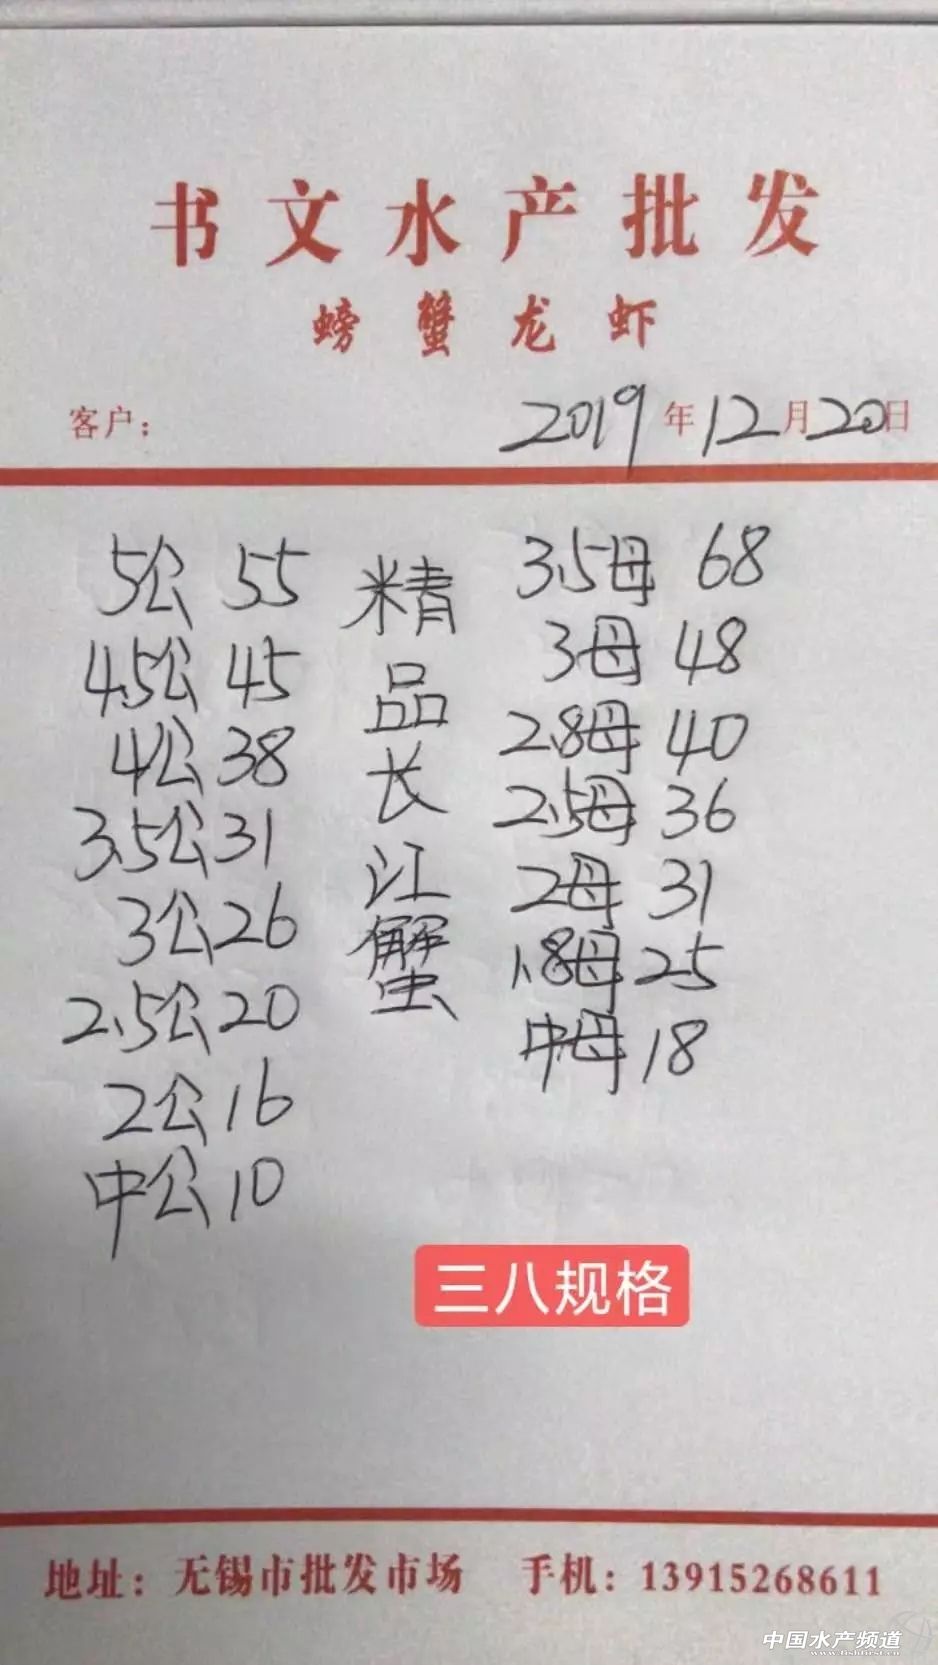 书文水产批发
螃蟹龙虾
客户： 2019年12月20日
5公 55
4.5公 45
4公 38
3.5公 31
3公 26
2.5公 20
2公 16
中公 10
精品长江蟹
3.5母 68
3母 48
2.8母 40
2.5母 36
2母 31
1.8母 25
中母 18
三八规格
地址：无锡市批发市场 手机：13915268611
中国水产频道
www.fishfirst.cn